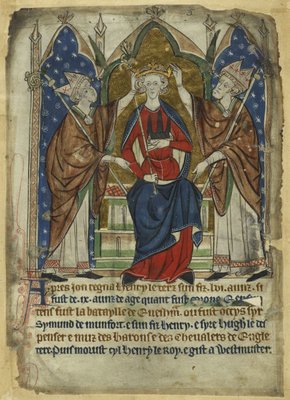 Apres Jon regna Henry le terz sun fiz .lvi. aunz. si
fust de .ix. aunz de age quant fust corone
tens fust la bataylle de Evesham. ou fust occys syr
Symund de munfort. e sun fiz Henry. e syre Hugh le de
spenser e muz des barons e des Chevalers de Engle
tere. Puis morust cyl Henry le Roy. e gist a Westmuster.